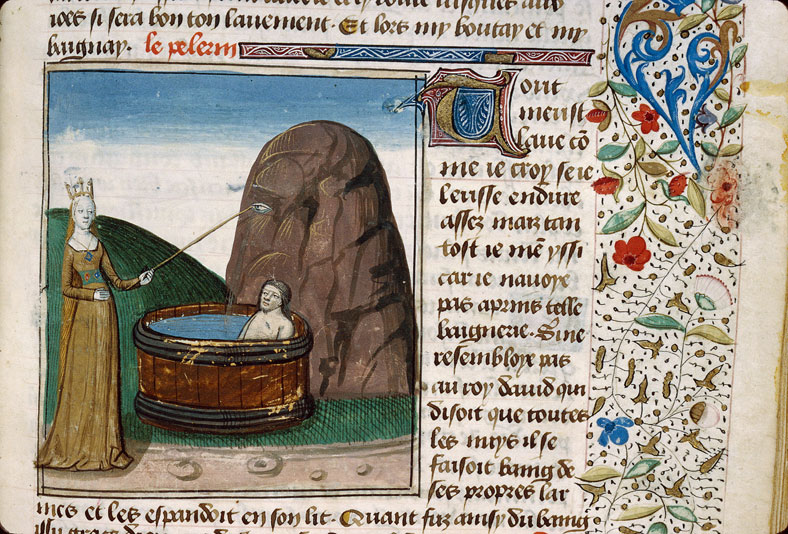 uees si sera bon ton lauement. Et lors my boutay et my
baignay. le pelerin
Tout
meust
laue cō
me ie croy se ie
leusse endure
assez maiz tan
tost ie mē yssi
car ie nauoye
pas aprins telle
baignerie. Si ne
resembloye pas
au roy dauid qui
disoit que toutes
les nuys il se
faisoit baing de
ses propres lar
mes et les espandoit en son lit. Quant fuz ainsy du baing